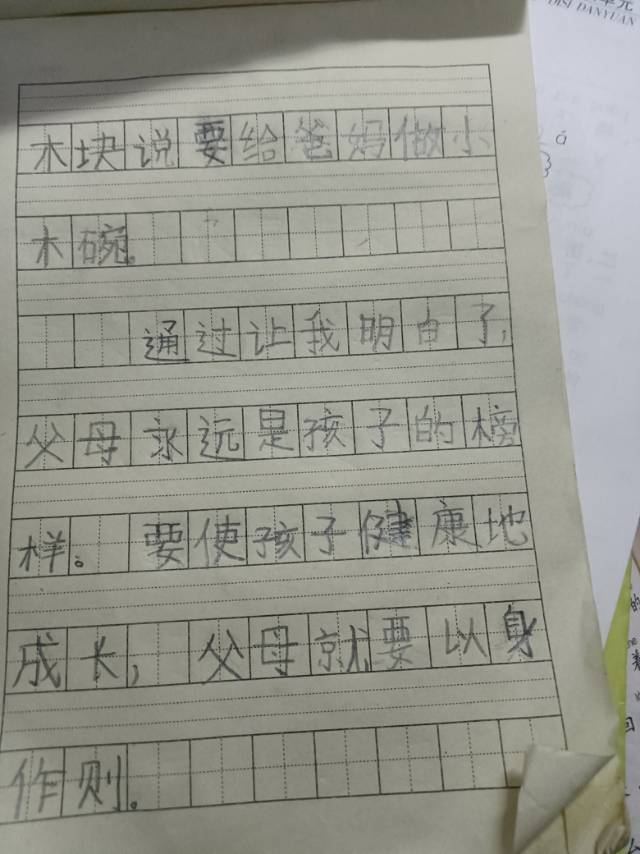 DISI DANYUAN
木块说要给爸妈做小
木碗。
通过让我明白了,
父母永远是孩子的榜
样。要使孩子健康地
成长,父母就要以身
作则。
á
的
回